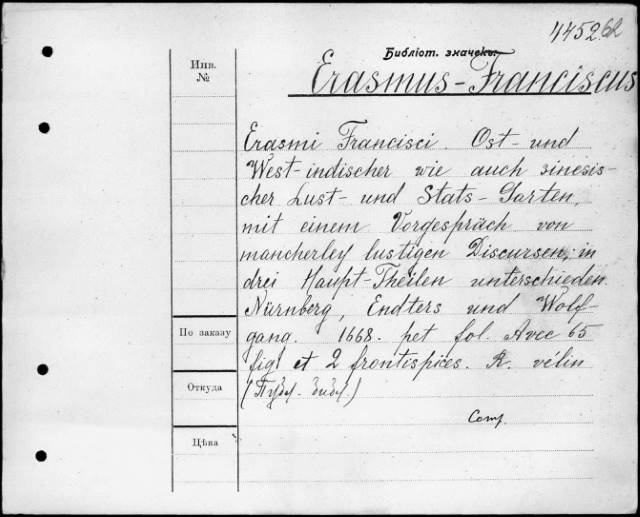 4452
Библіот. значекъ.
Erasmus-Franciscus
Инв.
№
Erasmi Francisci. Ost- und
West-indischer wie auch sinesis-
cher Lust- und Stats-Garten,
mit einem Vorgespräch von
mancherley lustigen Discursen, in
drei Haupt-Theilen unterschieden.
Nürnberg, Endters und Wolf-
gang. 1668. pet fol. Avec 65
fig. et 2 frontispices. R. vélin
(Публ. библ.)
Comp.
По заказу
Откуда
Цѣна